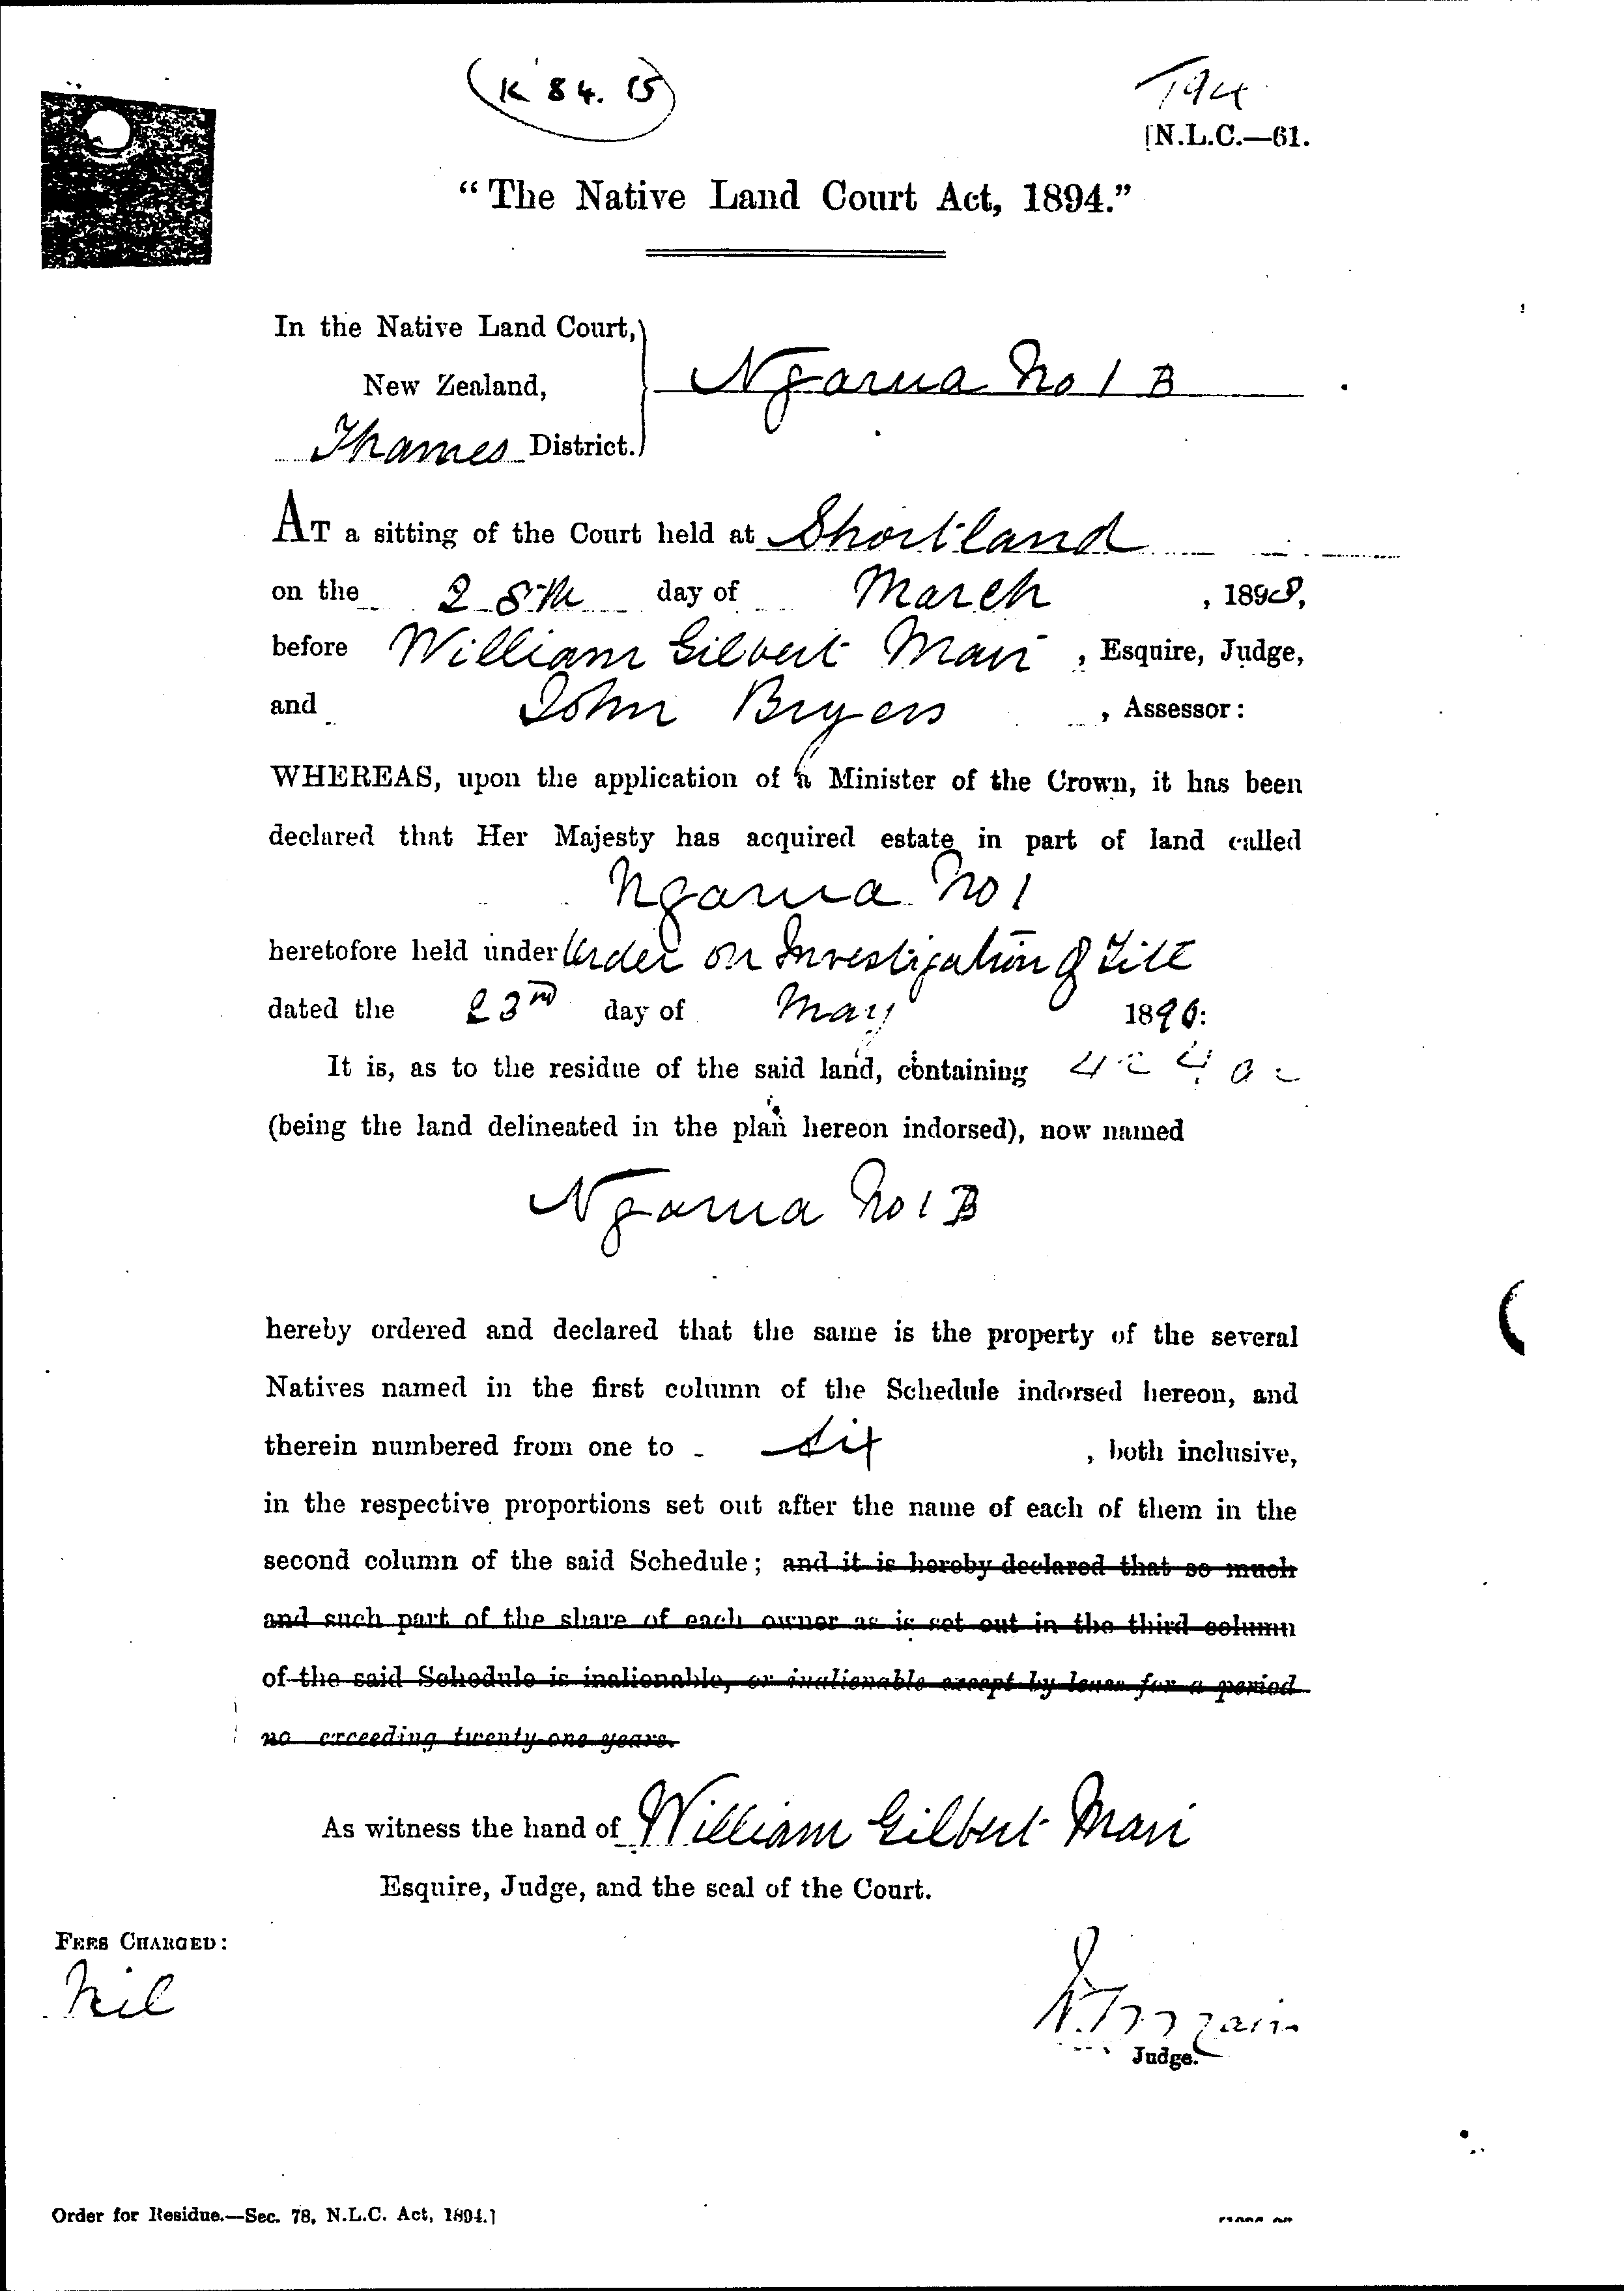 (K 84. 15)
T94
[N.L.C.—61.
"The Native Land Court Act, 1894."
In the Native Land Court,
New Zealand,
Thames District.
Ngarua No 1 B
AT a sitting of the Court held at Shortland
on the 28th day of March, 1898,
before William Gilbert Mair, Esquire, Judge,
and John Bryers, Assessor:
WHEREAS, upon the application of a Minister of the Crown, it has been
declared that Her Majesty has acquired estate in part of land called
Ngarua No 1
heretofore held under Order on Investigation of Title
dated the 23rd day of May 1890:
It is, as to the residue of the said land, containing
(being the land delineated in the plan hereon indorsed), now named
Ngarua No 1 B
hereby ordered and declared that the same is the property of the several
Natives named in the first column of the Schedule indorsed hereon, and
therein numbered from one to six, both inclusive,
in the respective proportions set out after the name of each of them in the
second column of the said Schedule; and it is hereby declared that so much
and such part of the share of each owner as is set out in the third column
of the said Schedule is inalienable, or inalienable except by lease for a period
no exceeding twenty-one years.
As witness the hand of William Gilbert Mair
Esquire, Judge, and the seal of the Court.
FEES CHARGED:
Nil
Judge.
Order for Residue.—Sec. 78, N.L.C. Act, 1894.]